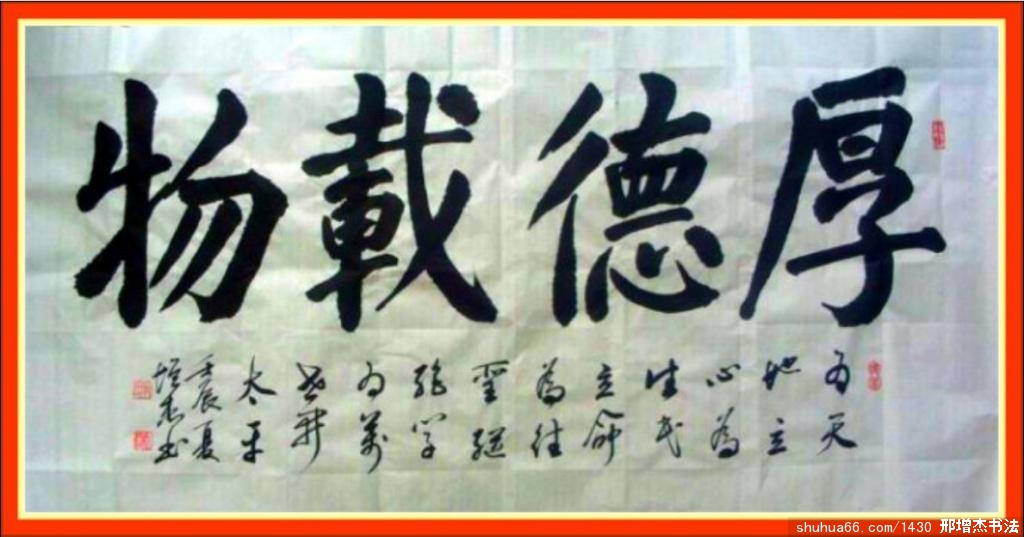 厚德載物
为天
地立
心為
生民
立命
為往
聖继
绝学
为萬
世开
太平
壬辰夏
增杰书
shuhua66.com/1430 邢增杰书法